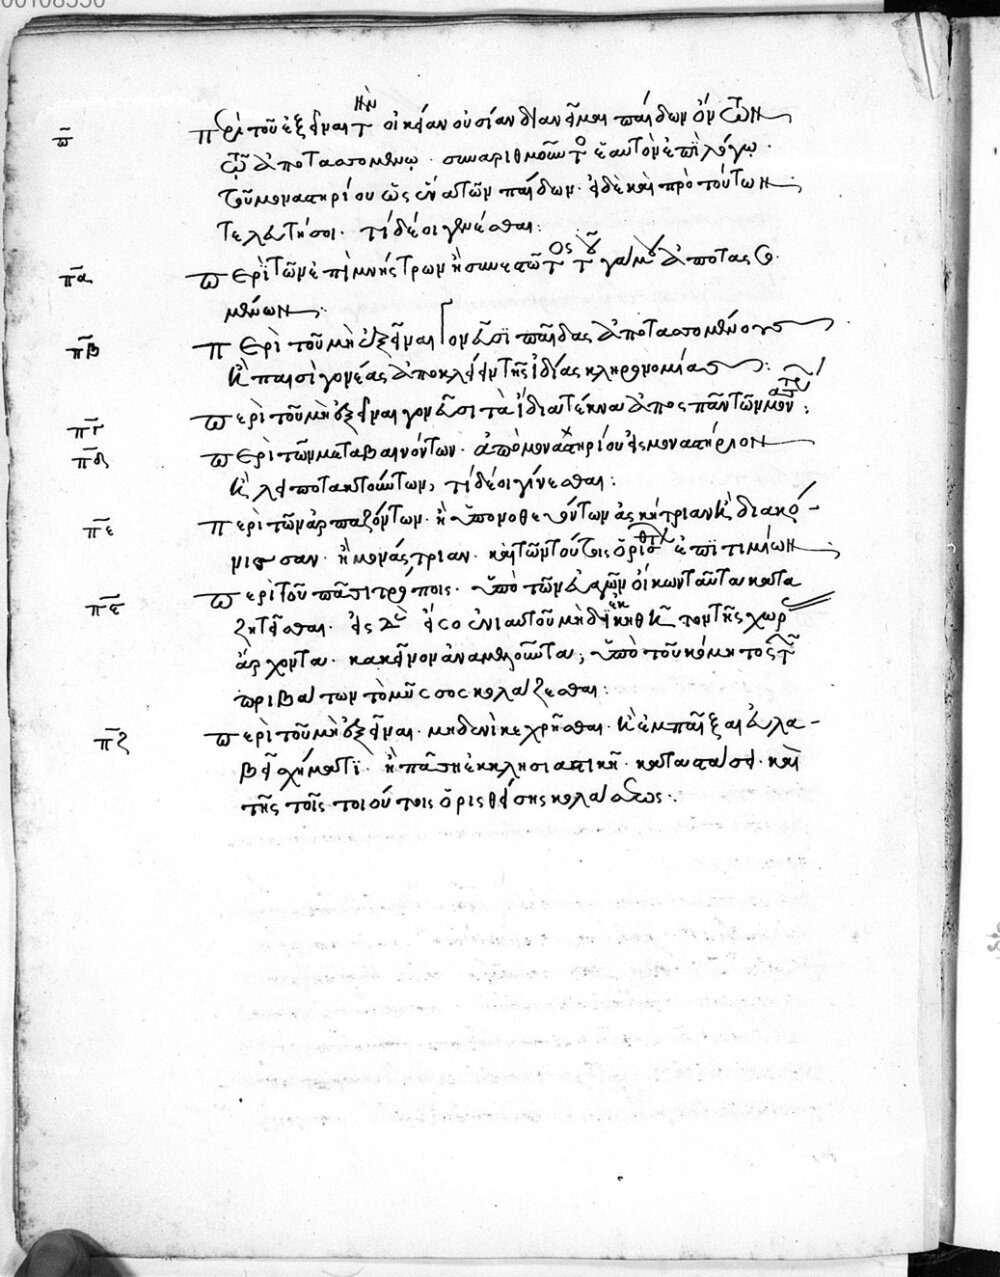 00108550
π̅ Περὶ τοῦ ἐξεῖναι τὴν οἰκείαν οὐσίαν διανεῖμαι παίδων ὄντων
τῷ ἀποτασσομένῳ· συναριθμοῦντος ἑαυτὸν ἐπὶ λόγῳ·
τοῦ μοναστηρίου ὡς ἕνα τῶν παίδων· εἰ δὲ καὶ πρὸ τούτων
τελευτήσοι· τί δέοι γενέσθαι:
π̅α̅ Περὶ τῶν ἐπὶ μνήστρων ἢ συνεστῶτος τοῦ γάμου ἀποτασσο
μένων:
π̅β̅ Περὶ τοῦ μὴ ἐξεῖναι γονεῦσι παῖδας ἀποτασσομένους
ἢ παισὶ γονέας ἀποκλείειν τῆς ἰδίας κληρονομίας:
π̅γ̅ Περὶ τοῦ μὴ ἐξεῖναι γονεῦσι τὰ ἴδια τέκνα ἀποσπᾶν τῶν μοναστηρίων:
π̅δ̅ Περὶ τῶν μεταβαινόντων· ἀπὸ μοναστηρίου εἰς μοναστήριον
ἢ λειποτακτούντων, τί δέοι γίνεσθαι:
π̅ε̅ Περὶ τῶν ἁρπαζόντων· ἢ ὑπονοθευόντων ἀσκήτριαν ἢ διακό-
νισσαν· ἢ μονάστριαν· καὶ τῶν τούτοις ὁρισθέντων ἐπιτιμίων
π̅ϛ̅ Περὶ τοῦ πᾶσι τρόποις· ὑπὸ τῶν εὐαγῶν οἴκων ταῦτα κατα
ζητεῖσθαι· εἰς δὲ εἴσω ἐνιαυτοῦ μὴ ἐκδικηθῇ τὸν τῆς χώρας
ἄρχοντα· κἀκείνου ἀναμελοῦντα, ὑπὸ τοῦ κόμητος τῶν
πριβάτων τὸ μῦσος κολάζεσθαι:
π̅ζ̅ Περὶ τοῦ μὴ ἐξεῖναι· μηδενὶ κεχρῆσθαι· ἢ ἐμπαῖξαι εὐλα-
βεῖ σχήματι· ἢ πάσῃ ἐκκλησιαστικῇ· καταστάσει· καὶ
τῆς τοῖς τοιούτοις ὁρισθείσης κολάσεως: